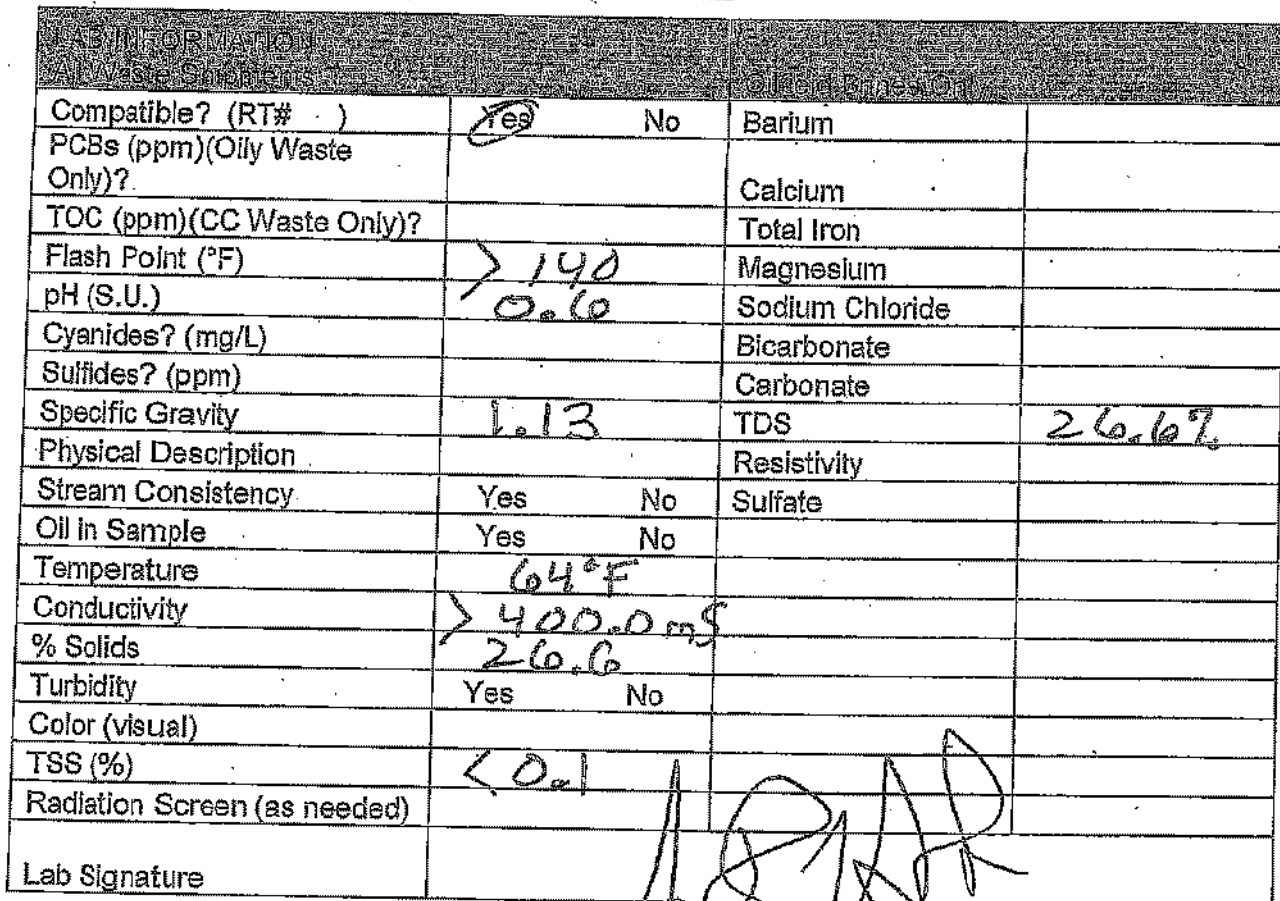 LAB INFORMATION
All Waste Shipments
Oilfield Brines Only
Compatible? (RT# ) Yes No Barium
PCBs (ppm)(Oily Waste
Only)? Calcium
TOC (ppm)(CC Waste Only)? Total Iron
Flash Point (°F) > 140 Magnesium
pH (S.U.) 0.60 Sodium Chloride
Cyanides? (mg/L) Bicarbonate
Sulfides? (ppm) Carbonate
Specific Gravity 1.13 TDS 26.6%
Physical Description Resistivity
Stream Consistency Yes No Sulfate
Oil in Sample Yes No
Temperature 64°F
Conductivity > 400.0 mS
% Solids 26.6
Turbidity Yes No
Color (visual)
TSS (%) < 0.1
Radiation Screen (as needed)
Lab Signature